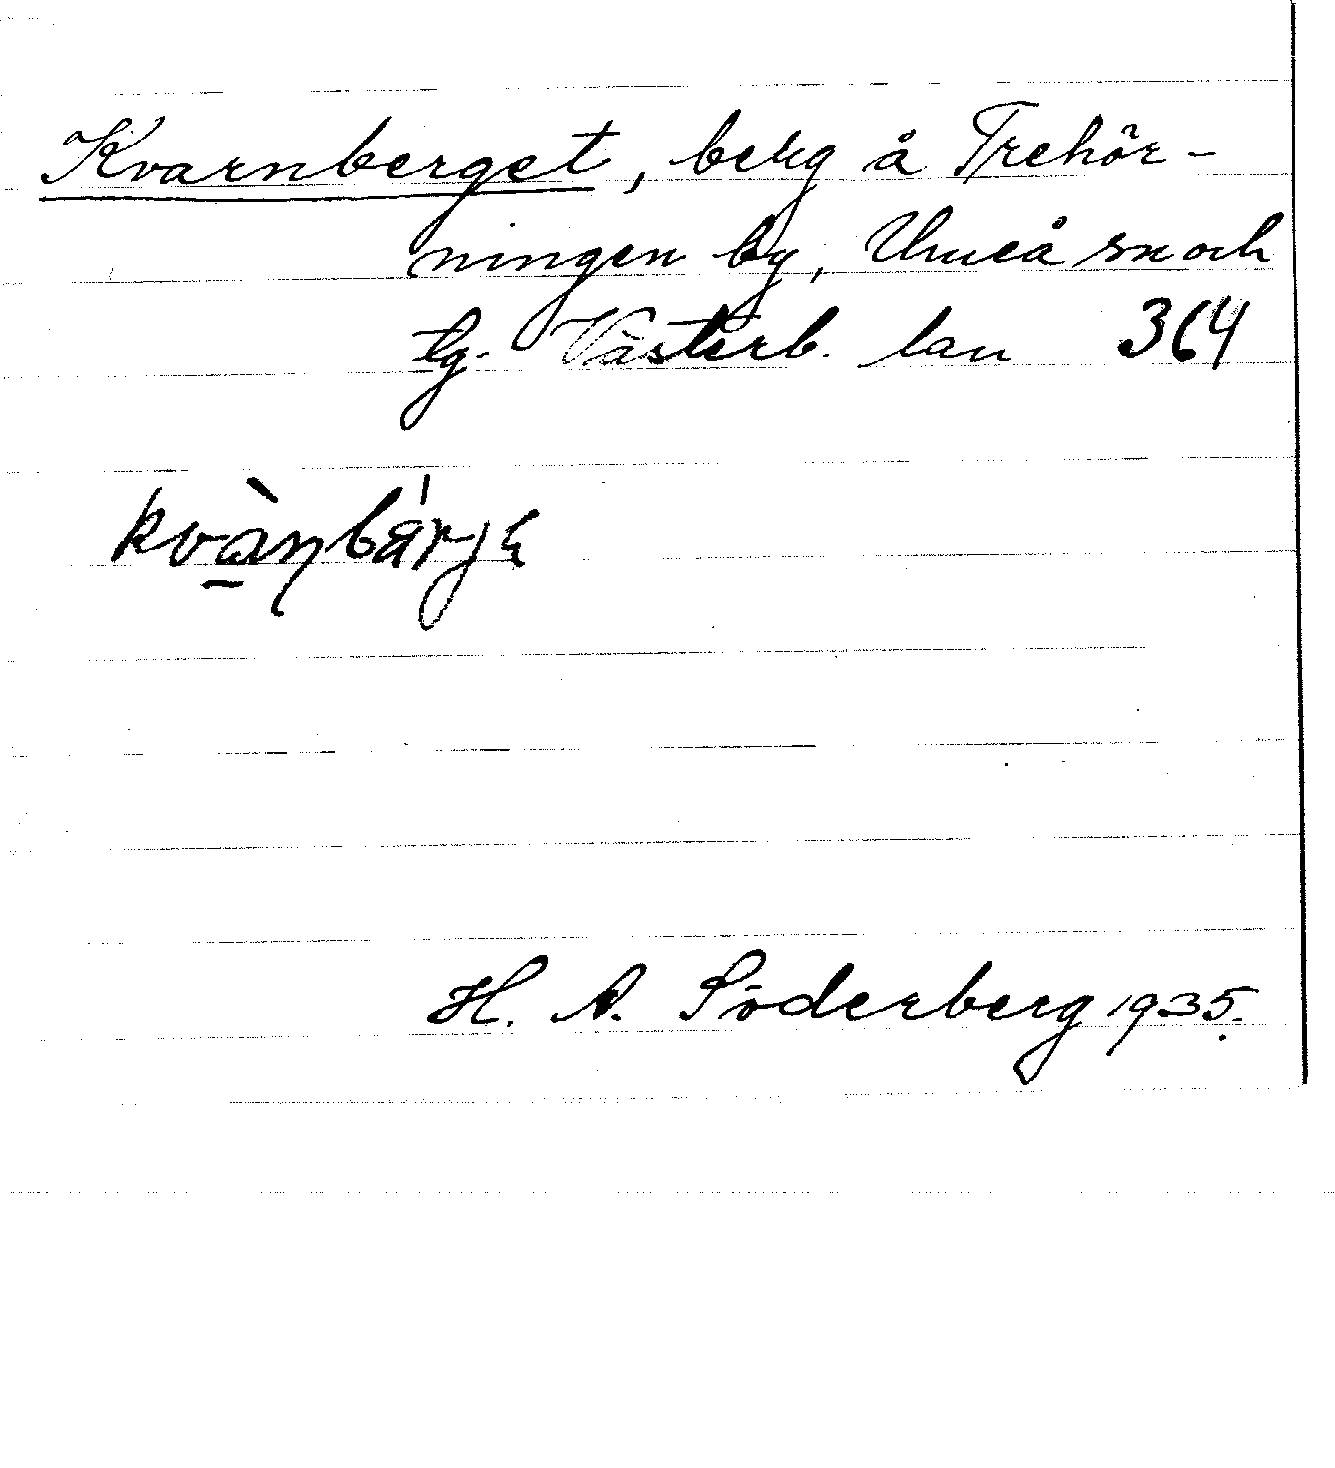 Kvarnberget, berg å Trehör-
ningen by, Umeå sn och
tg. Västerb. län 364
kvànbárjɛ
H. A. Söderberg 1935.